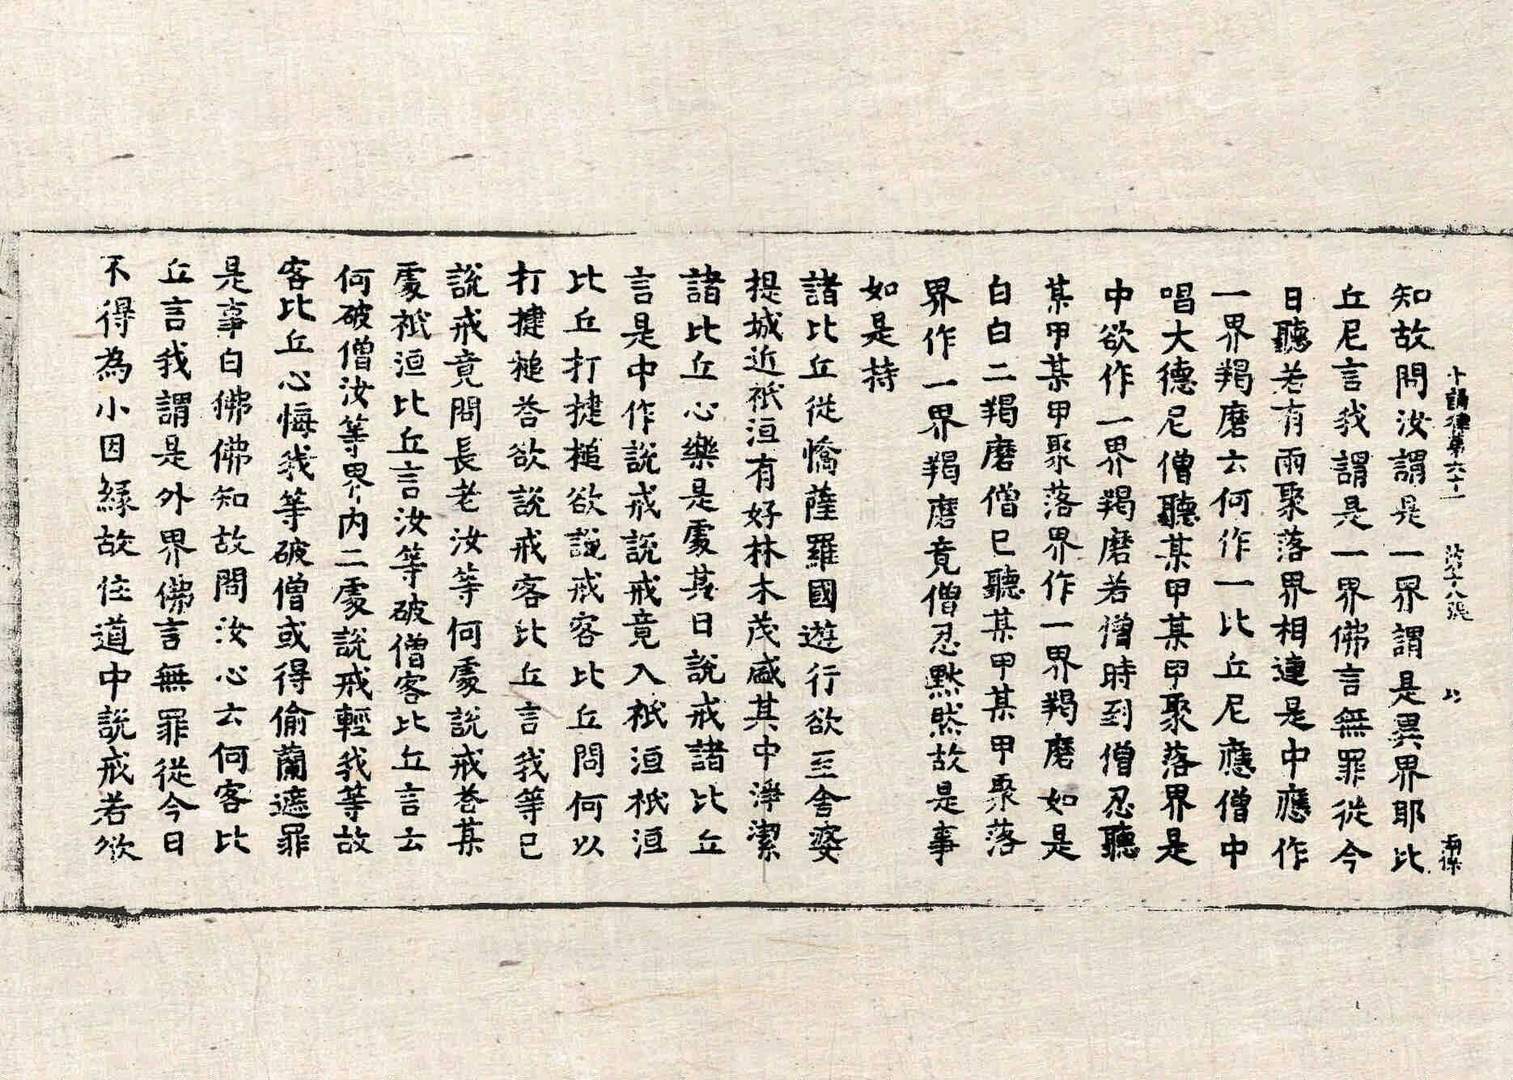 十誦律第六十一 第十八張
知故問汝謂是一界謂是異界耶比
丘尼言我謂是一界佛言無罪從今
日聽若有兩聚落界相連是中應作
一界羯磨云何作一比丘尼應僧中
唱大德尼僧聽某甲某甲聚落界是
中欲作一界羯磨若僧時到僧忍聽
某甲某甲聚落界作一界羯磨如是
白白二羯磨僧已聽某甲某甲聚落
界作一界羯磨竟僧忍默然故是事
如是持
諸比丘從憍薩羅國遊行欲至舍婆
提城近祇洹有好林木茂盛其中淨潔
諸比丘心樂是處其日說戒諸比丘
言是中作說戒說戒竟入祇洹祇洹
比丘打揵槌欲說戒客比丘問何以
打揵槌荅欲說戒客比丘言我等已
說戒竟問長老汝等何處說戒荅某
處祇洹比丘言汝等破僧客比丘言云
何破僧汝等界內二處說戒輕我等故
客比丘心悔我等破僧或得偷蘭遮罪
是事白佛佛知故問汝心云何客比
丘言我謂是外界佛言無罪從今日
不得為小因緣故住道中說戒若欲